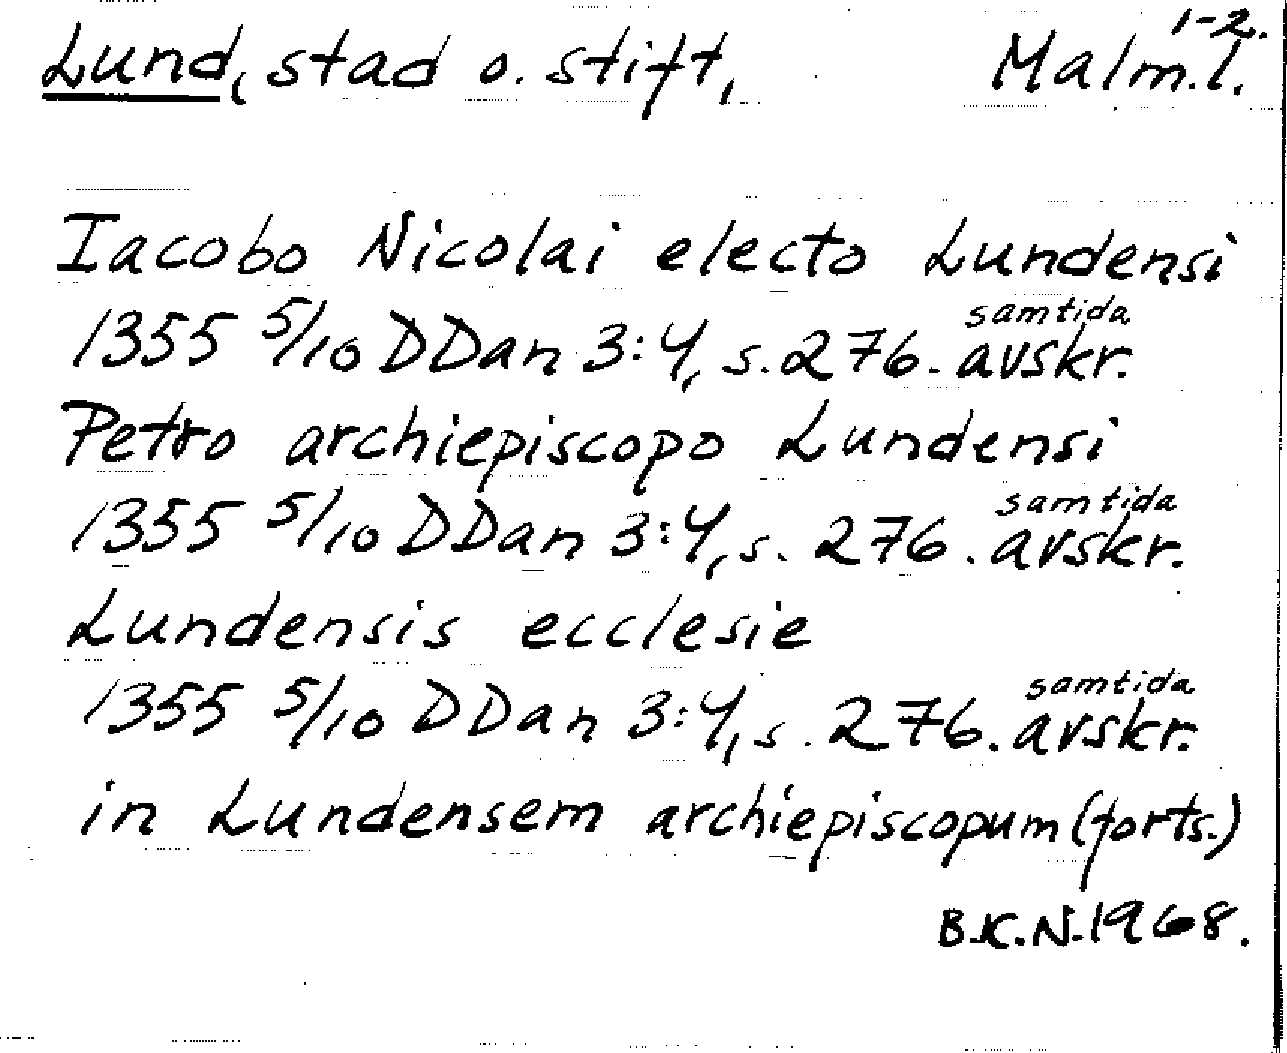 Lund, stad o. stift, Malm.l. 1-2.
Iacobo Nicolai electo Lundensi
1355 5/10 DDan 3:4, s. 276. samtida avskr.
Petro archiepiscopo Lundensi
1355 5/10 DDan 3:4, s. 276. samtida avskr.
Lundensis ecclesie
1355 5/10 DDan 3:4, s. 276. samtida avskr.
in Lundensem archiepiscopum (forts.)
B.K.N. 1968.